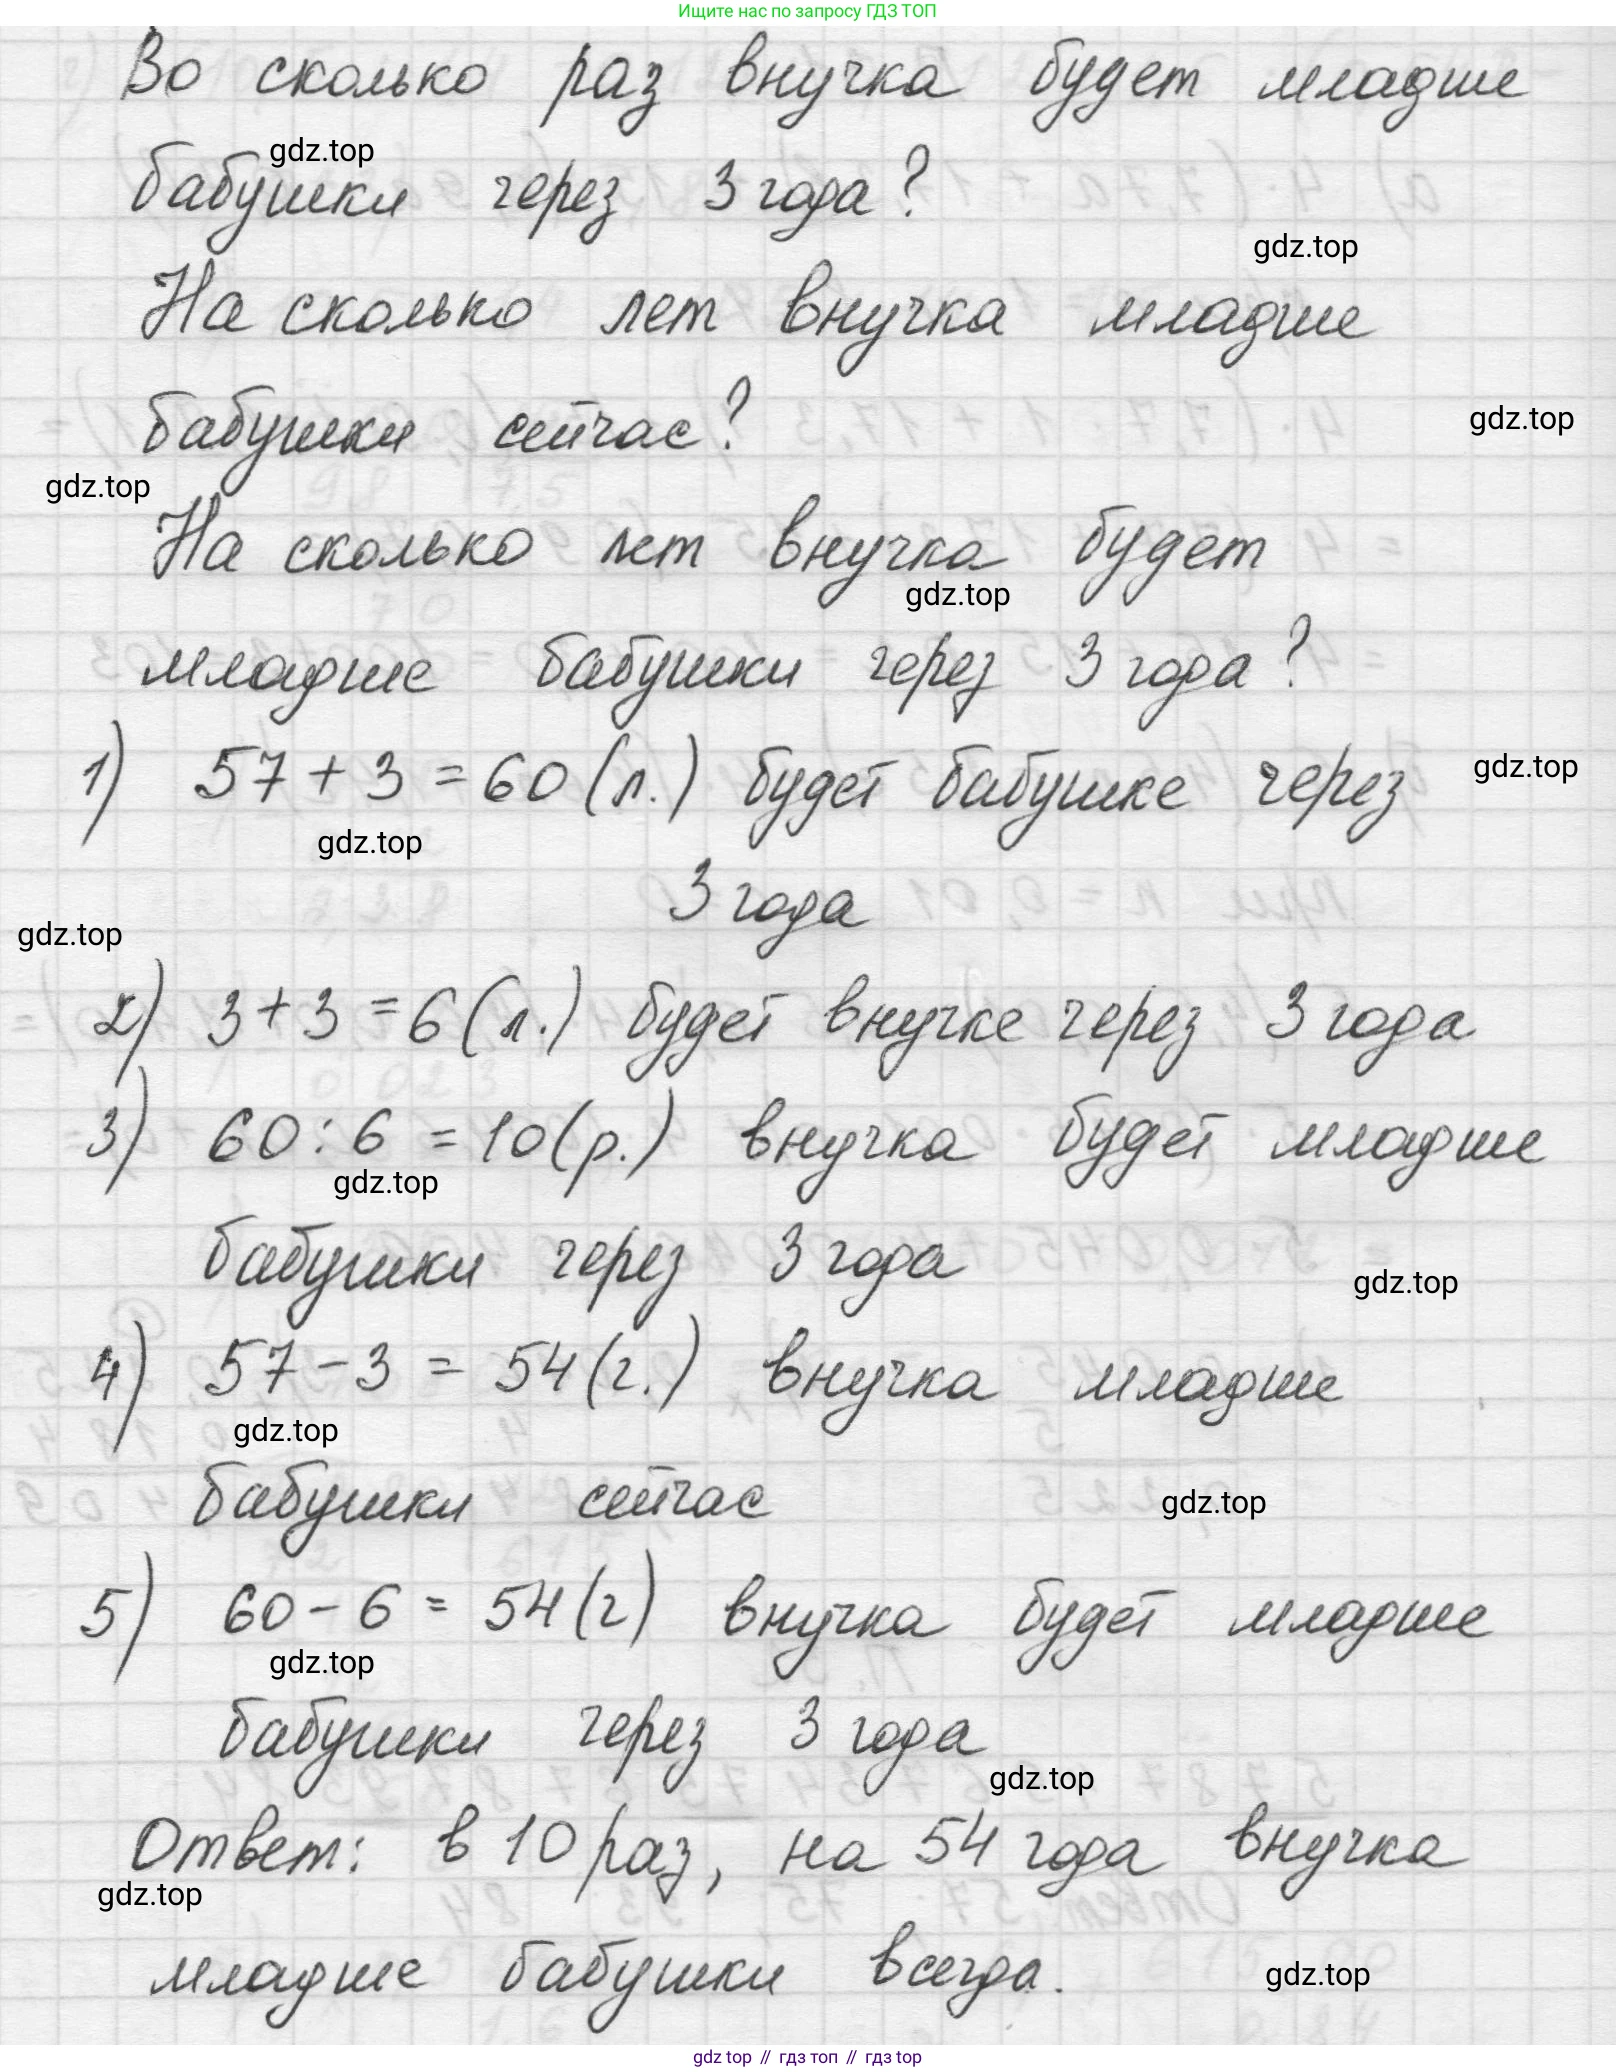 Ищите нас по запросу ГДЗ ТОП
Во сколько раз внучка будет младше
gdz.top
бабушки через 3 года?
gdz.top
На сколько лет внучка младше
бабушки сейчас?
gdz.top
gdz.top
На сколько лет внучка будет
gdz.top
младше бабушки через 3 года?
1) 57 + 3 = 60 (л.) будет бабушке через
gdz.top
gdz.top
3 года
gdz.top
2) 3 + 3 = 6 (л.) будет внучке через 3 года
3) 60 : 6 = 10 (р.) внучка будет младше
gdz.top
бабушки через 3 года
gdz.top
4) 57 - 3 = 54 (г.) внучка младше
gdz.top
бабушки сейчас
gdz.top
5) 60 - 6 = 54 (г) внучка будет младше
gdz.top
бабушки через 3 года
gdz.top
Ответ: в 10 раз, на 54 года внучка
gdz.top
младше бабушки всегда.
gdz.top
gdz top // гдз топ // гдз top